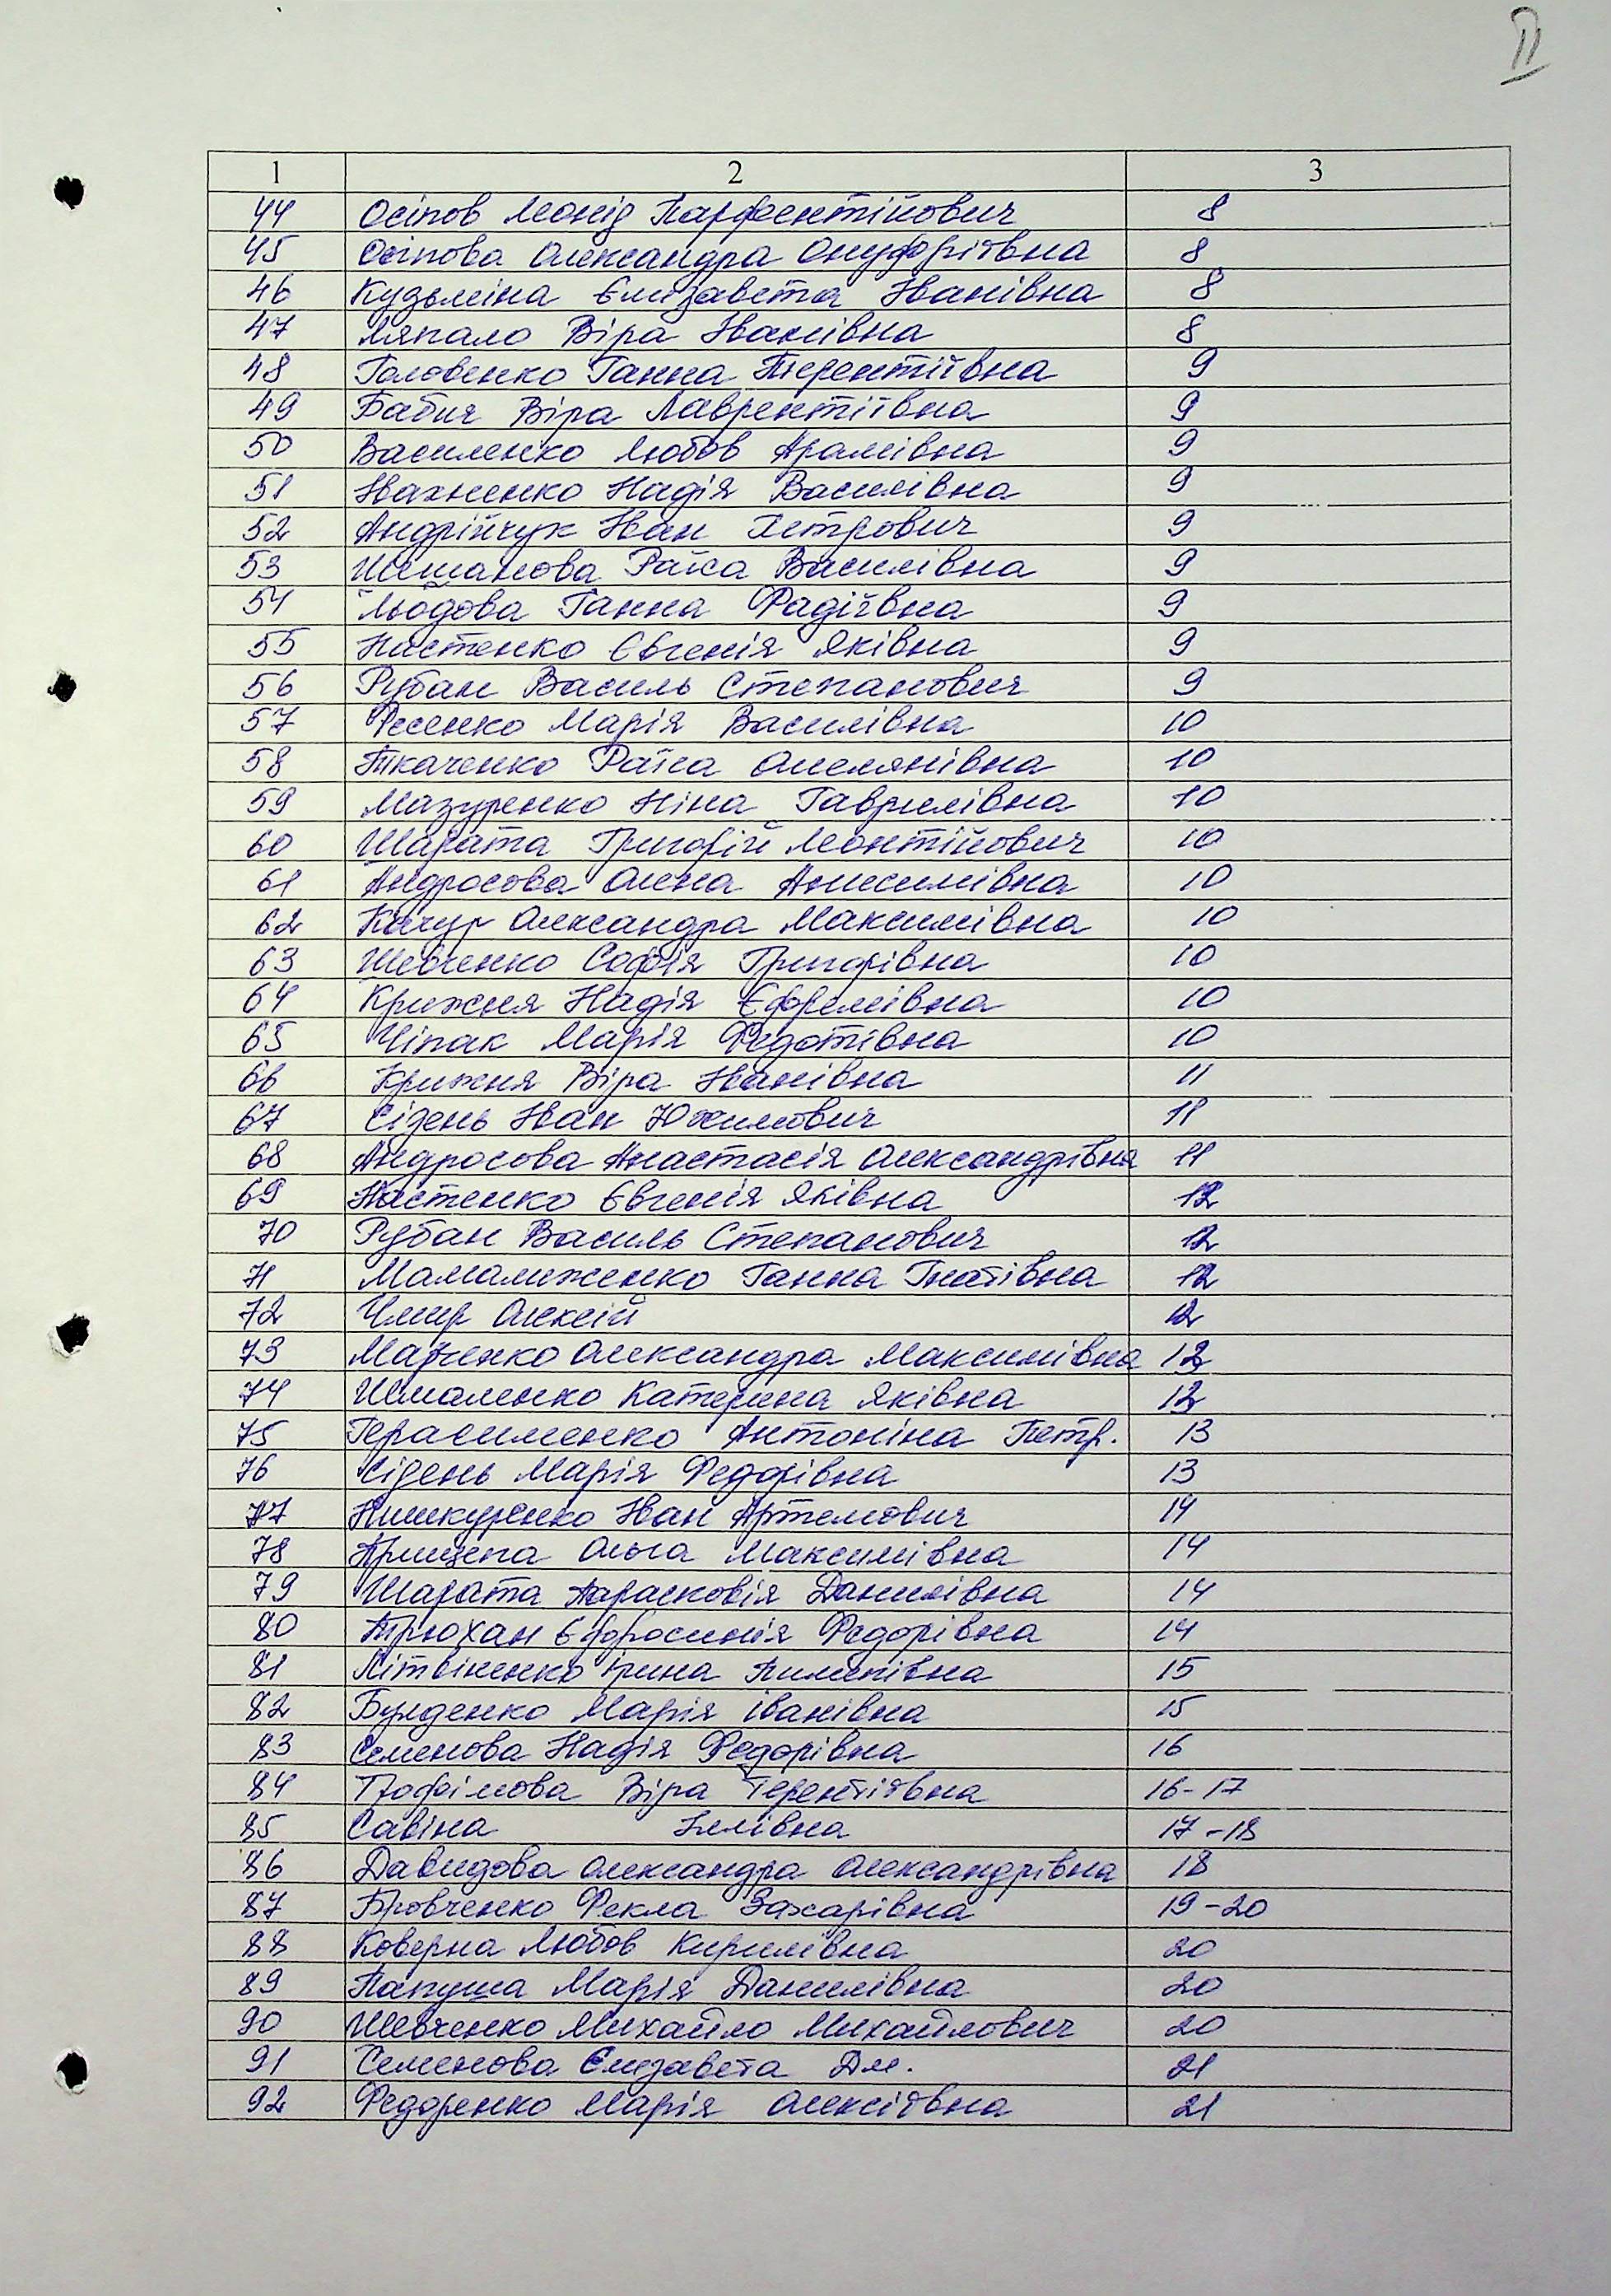 II
1 2 3
44 Осіпов Леонід Парфентійович 8
45 Осіпова Олександра Онуфріївна 8
46 Кузьміна Єлизавета Іванівна 8
47 Ляпало Віра Іванівна 8
48 Головенко Ганна Терентіївна 9
49 Бабич Віра Лаврентіївна 9
50 Василенко Любов Арамівна 9
51 Івахненко Надія Василівна 9
52 Андрійчук Іван Петрович 9
53 Шишанова Раїса Василівна 9
54 Льодова Ганна Фадіївна 9
55 Настенко Євгенія Яківна 9
56 Рубан Василь Степанович 9
57 Фесенко Марія Василівна 10
58 Ткаченко Раїса Омелянівна 10
59 Мазуренко Ніна Гаврилівна 10
60 Шарата Григорій Леонтійович 10
61 Андросова Олена Анисимівна 10
62 Качур Олександра Максимівна 10
63 Шевченко Софія Григорівна 10
64 Крижня Надія Єфремівна 10
65 Чіпак Марія Федотівна 10
66 Крижня Віра Іванівна 11
67 Сідень Іван Юхимович 11
68 Андросова Анастасія Олександрівна 11
69 Настенко Євгенія Яківна 12
70 Рубан Василь Степанович 12
71 Мамалиженко Ганна Гнатівна 12
72 Чмир Олексій 12
73 Марченко Олександра Максимівна 12
74 Шмаленко Катерина Яківна 13
75 Герасименко Антоніна Петр. 13
76 Сідень Марія Федорівна 13
77 Нишкуренко Іван Артемович 14
78 Прищепа Ольга Максимівна 14
79 Шарата Парасковія Данилівна 14
80 Трюхан Єфросинія Федорівна 14
81 Літвіненко Ірина Пименівна 15
82 Булденко Марія Іванівна 15
83 Семенова Надія Федорівна 16
84 Трофімова Віра Терентіївна 16-17
85 Савіна Іллівна 17-18
86 Давидова Олександра Олександрівна 18
87 Бровченко Фекла Захарівна 19-20
88 Коверна Любов Кирилівна 20
89 Папуша Марія Данилівна 20
90 Шевченко Михайло Михайлович 20
91 Семенова Єлизавета Дм. 21
92 Федоренко Марія Олексіївна 21